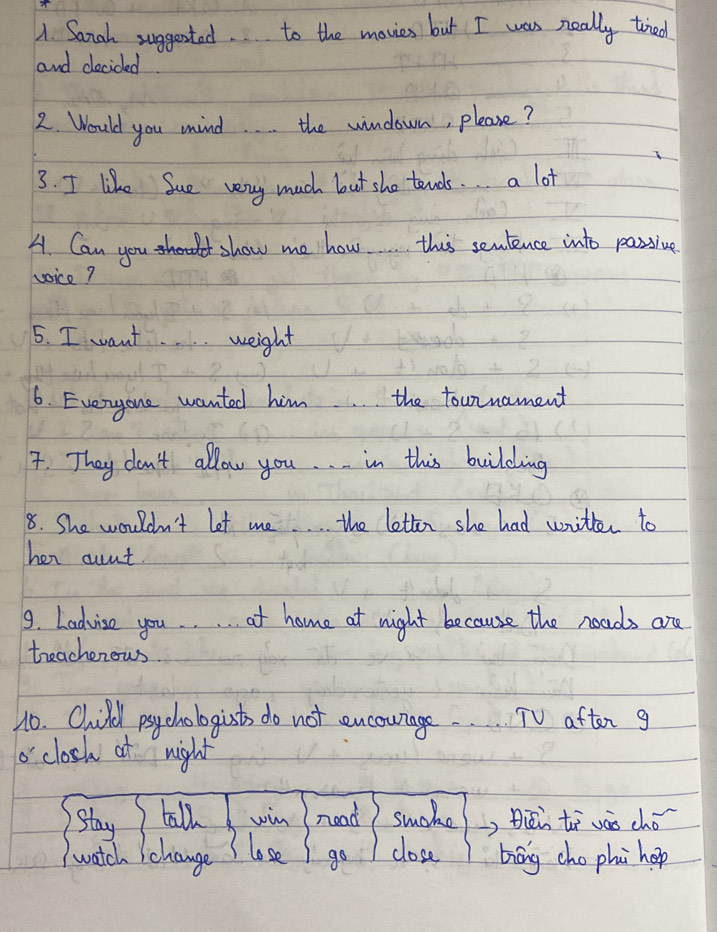 *
1. Sarah suggested .... to the movies but I was really tired
and decided.
2. Would you mind .... the windown, please?
3. I like Sue very much but she tends .... a lot
4. Can you should show me how ..... this sentence into passive
voice?
5. I want ..... weight
6. Everyone wanted him ..... the tournament
7. They don't allow you .... in this building
8. She wouldn't let me .... the letter she had written to
her aunt.
9. I advise you .. .... at home at night because the roads are
treacherous.
10. Child psychologists do not encourage ...... TV after 9
o'clock at night
Stay talk win read smoke → Điền từ vào chỗ
watch change lose go close trống cho phù hợp